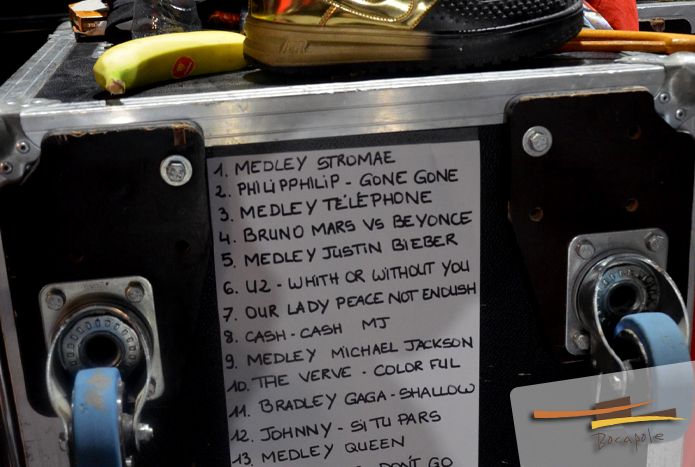 1. MEDLEY STROMAE
2. PHILIPPHILIP - GONE GONE
3. MEDLEY TÉLÉPHONE
4. BRUNO MARS VS BEYONCE
5. MEDLEY JUSTIN BIEBER
6. U2 - WHITH OR WITHOUT YOU
7. OUR LADY PEACE NOT ENOUGH
8. CASH - CASH MJ
9. MEDLEY MICHAEL JACKSON
10. THE VERVE - COLOR FUL
11. BRADLEY GAGA - SHALLOW
12. JOHNNY - SI TU PARS
13. MEDLEY QUEEN
DON'T GO
Bocapole